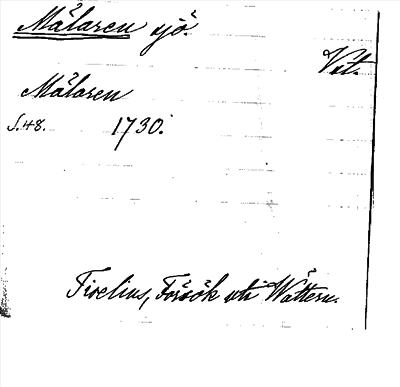 Mälaren sjö.
Vet.
Mälaren
S.48. 1730.
Tiselius, Försök uti Wättern.